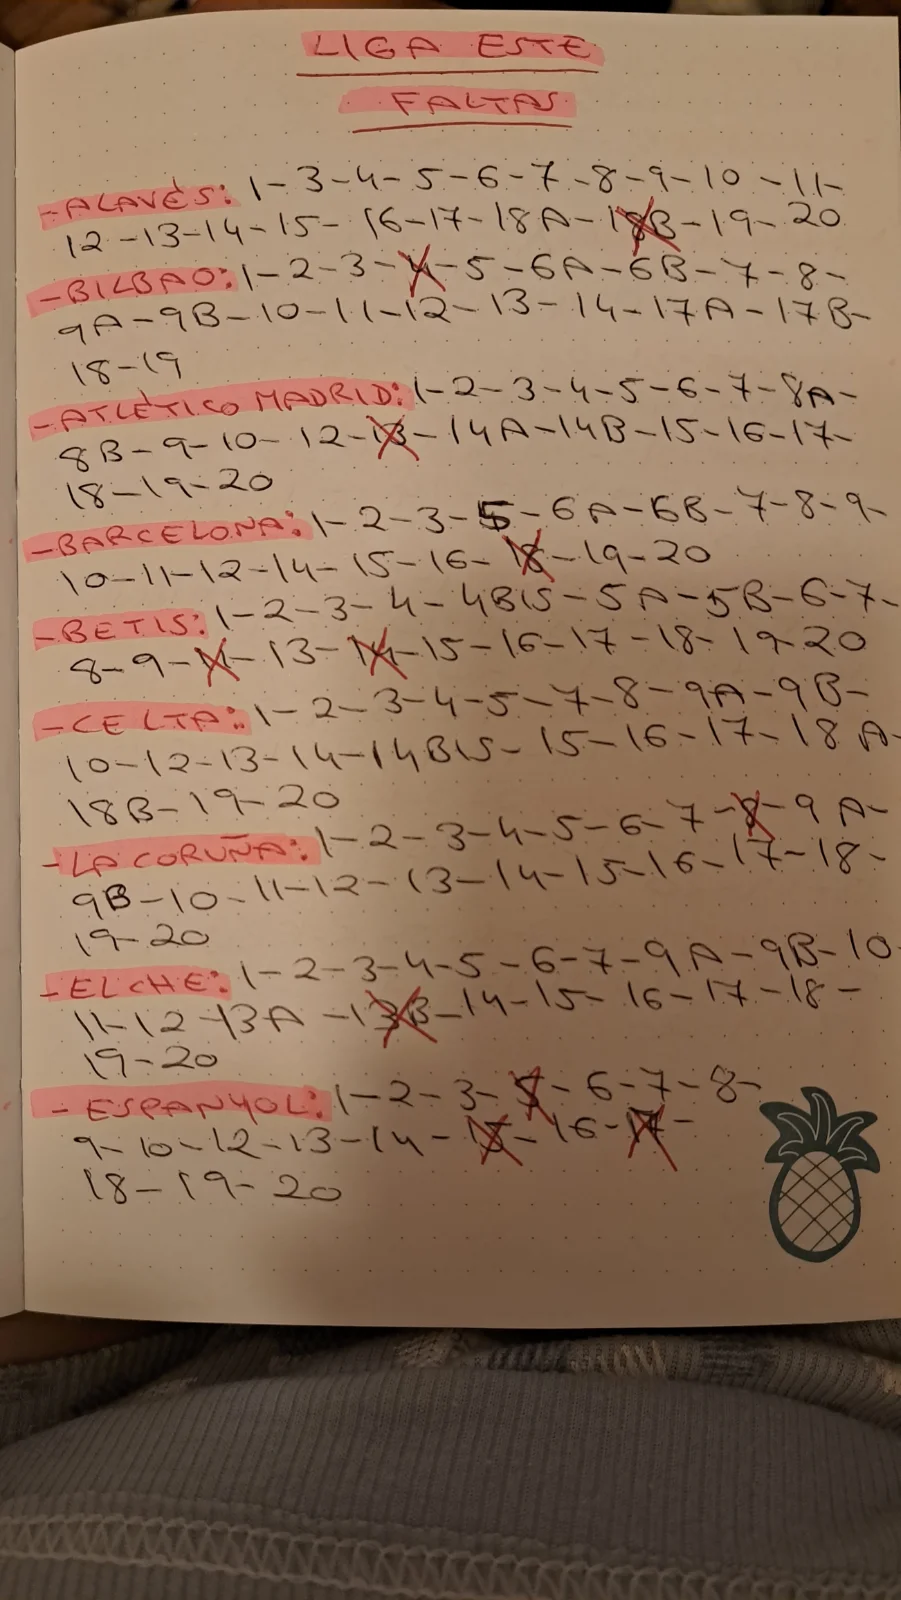 LIGA ESTE
FALTAS
-ALAVÈS: 1-3-4-5-6-7-8-9-10-11-
12-13-14-15-16-17-18A-18B-19-20
-BILBAO: 1-2-3-4-5-6A-6B-7-8-
9A-9B-10-11-12-13-14-17A-17B-
18-19
-ATLÈTICO MADRID: 1-2-3-4-5-6-7-8A-
8B-9-10-12-13-14A-14B-15-16-17-
18-19-20
-BARCELONA: 1-2-3-5-6A-6B-7-8-9-
10-11-12-14-15-16-18-19-20
-BETIS: 1-2-3-4-4BIS-5A-5B-6-7-
8-9-11-13-14-15-16-17-18-19-20
-CELTA: 1-2-3-4-5-7-8-9A-9B-
10-12-13-14-14BIS-15-16-17-18A-
18B-19-20
-LA CORUÑA: 1-2-3-4-5-6-7-8-9A-
9B-10-11-12-13-14-15-16-17-18-
19-20
-ELCHE: 1-2-3-4-5-6-7-9A-9B-10
11-12-13A-13B-14-15-16-17-18-
19-20
-ESPANYOL: 1-2-3-5-6-7-8-
9-10-12-13-14-15-16-17-
18-19-20